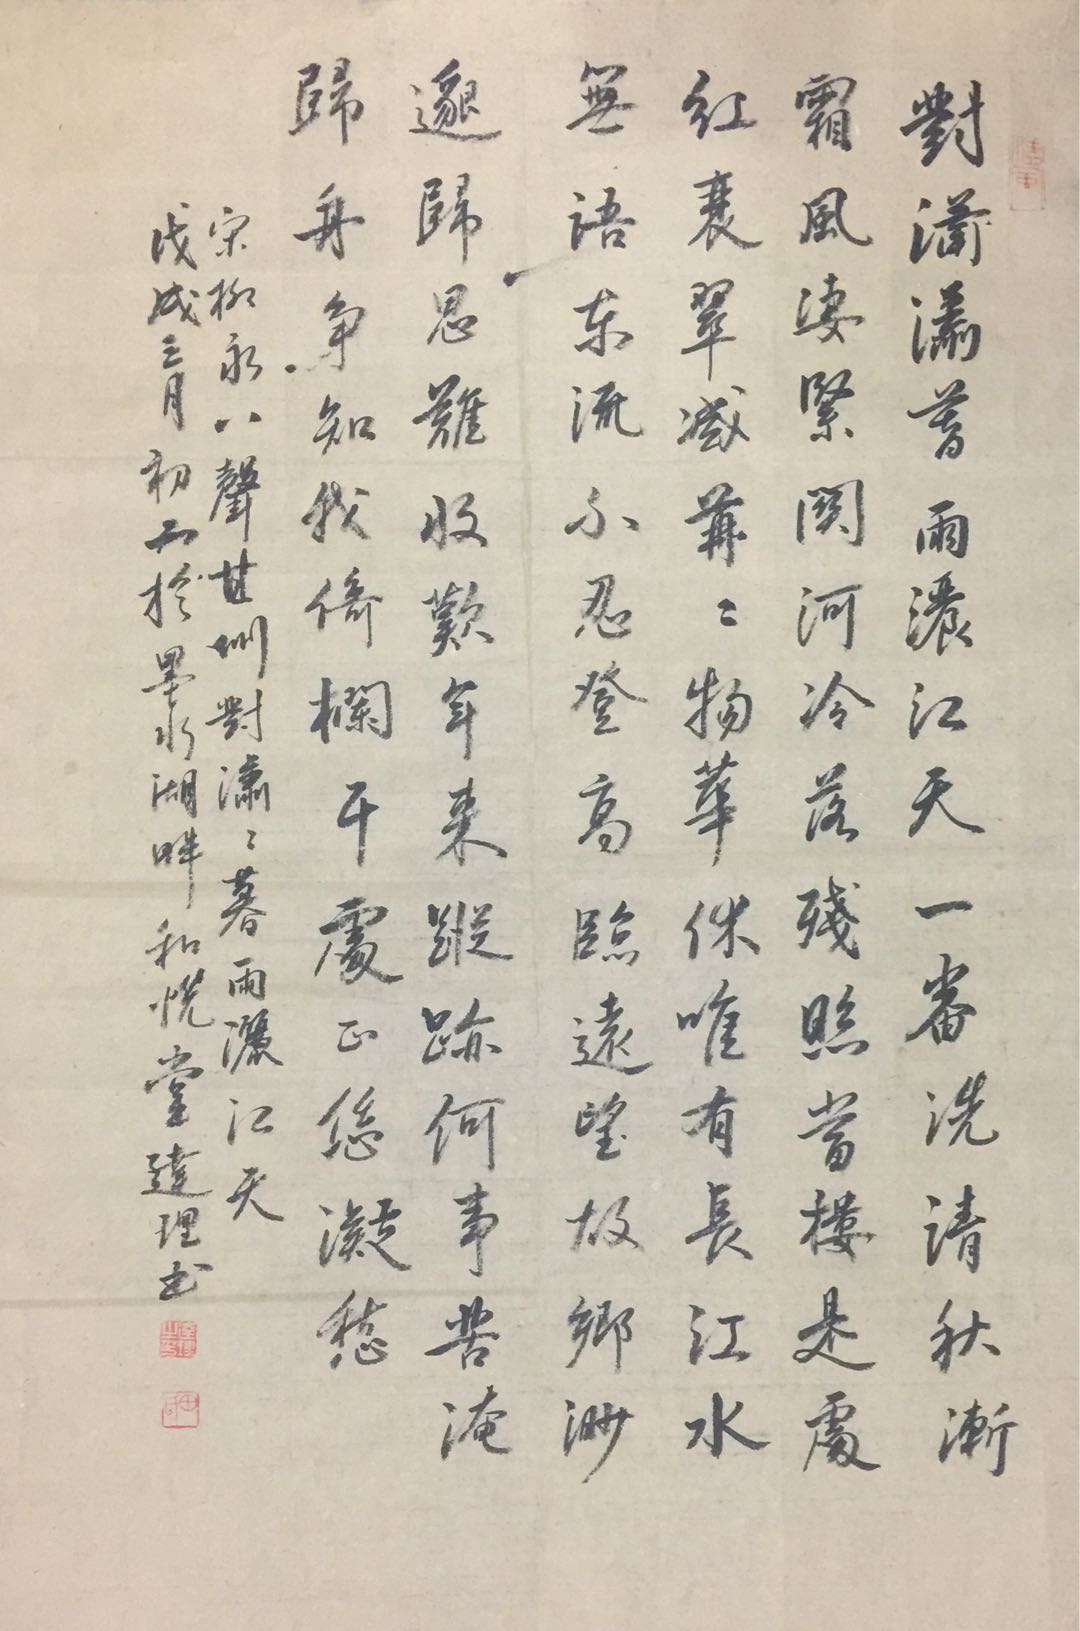 對瀟瀟暮雨灑江天一番洗清秋漸
霜風淒緊關河冷落殘照當樓是處
紅衰翠減苒〻物華休唯有長江水
無語東流不忍登高臨遠望故鄉渺
邈歸思難收歎年来蹤跡何事苦淹
歸舟争知我倚欄干處正恁凝愁
宋柳永八聲甘州對瀟〻暮雨灑江天
戊戌三月初於墨水湖畔和悦堂達理书